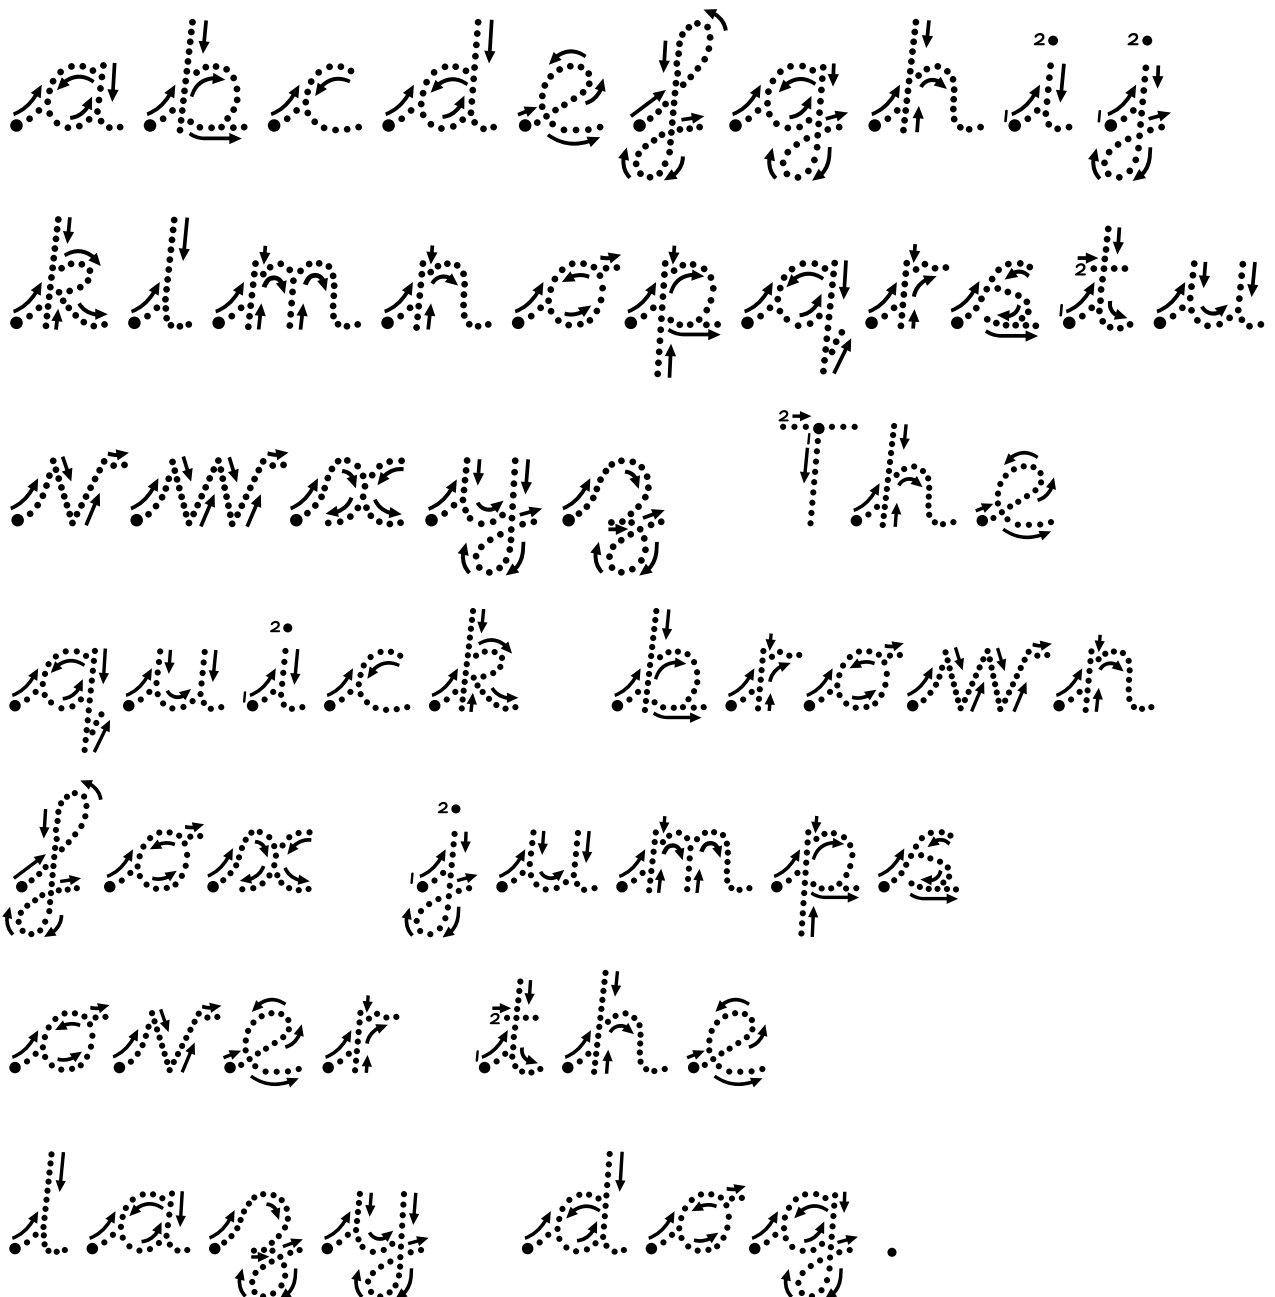 a b c d e f g h i j
k l m n o p q r s t u
v w x y z The
quick brown
fox jumps
over the
lazy dog.